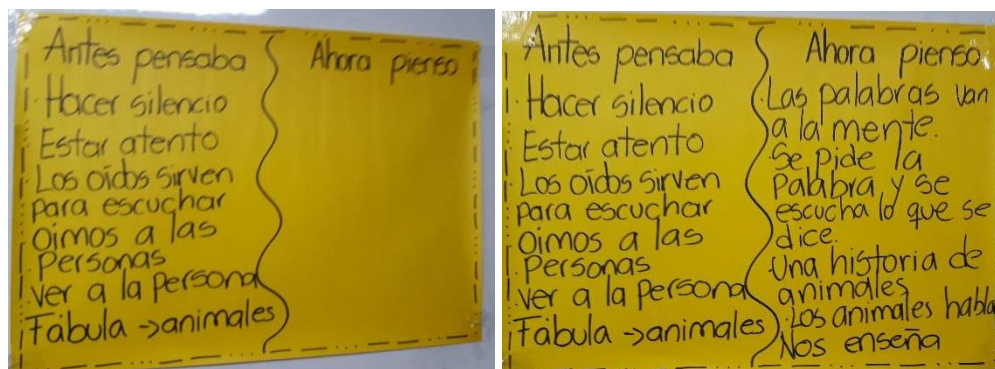 Antes pensaba
Hacer silencio
Estar atento
Los oídos sirven
para escuchar
oimos a las
personas
ver a la persona
Fábula →animales
Ahora pienso
Antes pensaba
Hacer silencio
Estar atento
Los oídos sirven
para escuchar
oimos a las
personas
ver a la persona
Fábula →animales
Ahora pienso
Las palabras van
a la mente.
Se pide la
palabra, y se
escucha lo que se
dice.
Una historia de
animales
Los animales habla
Nos enseña